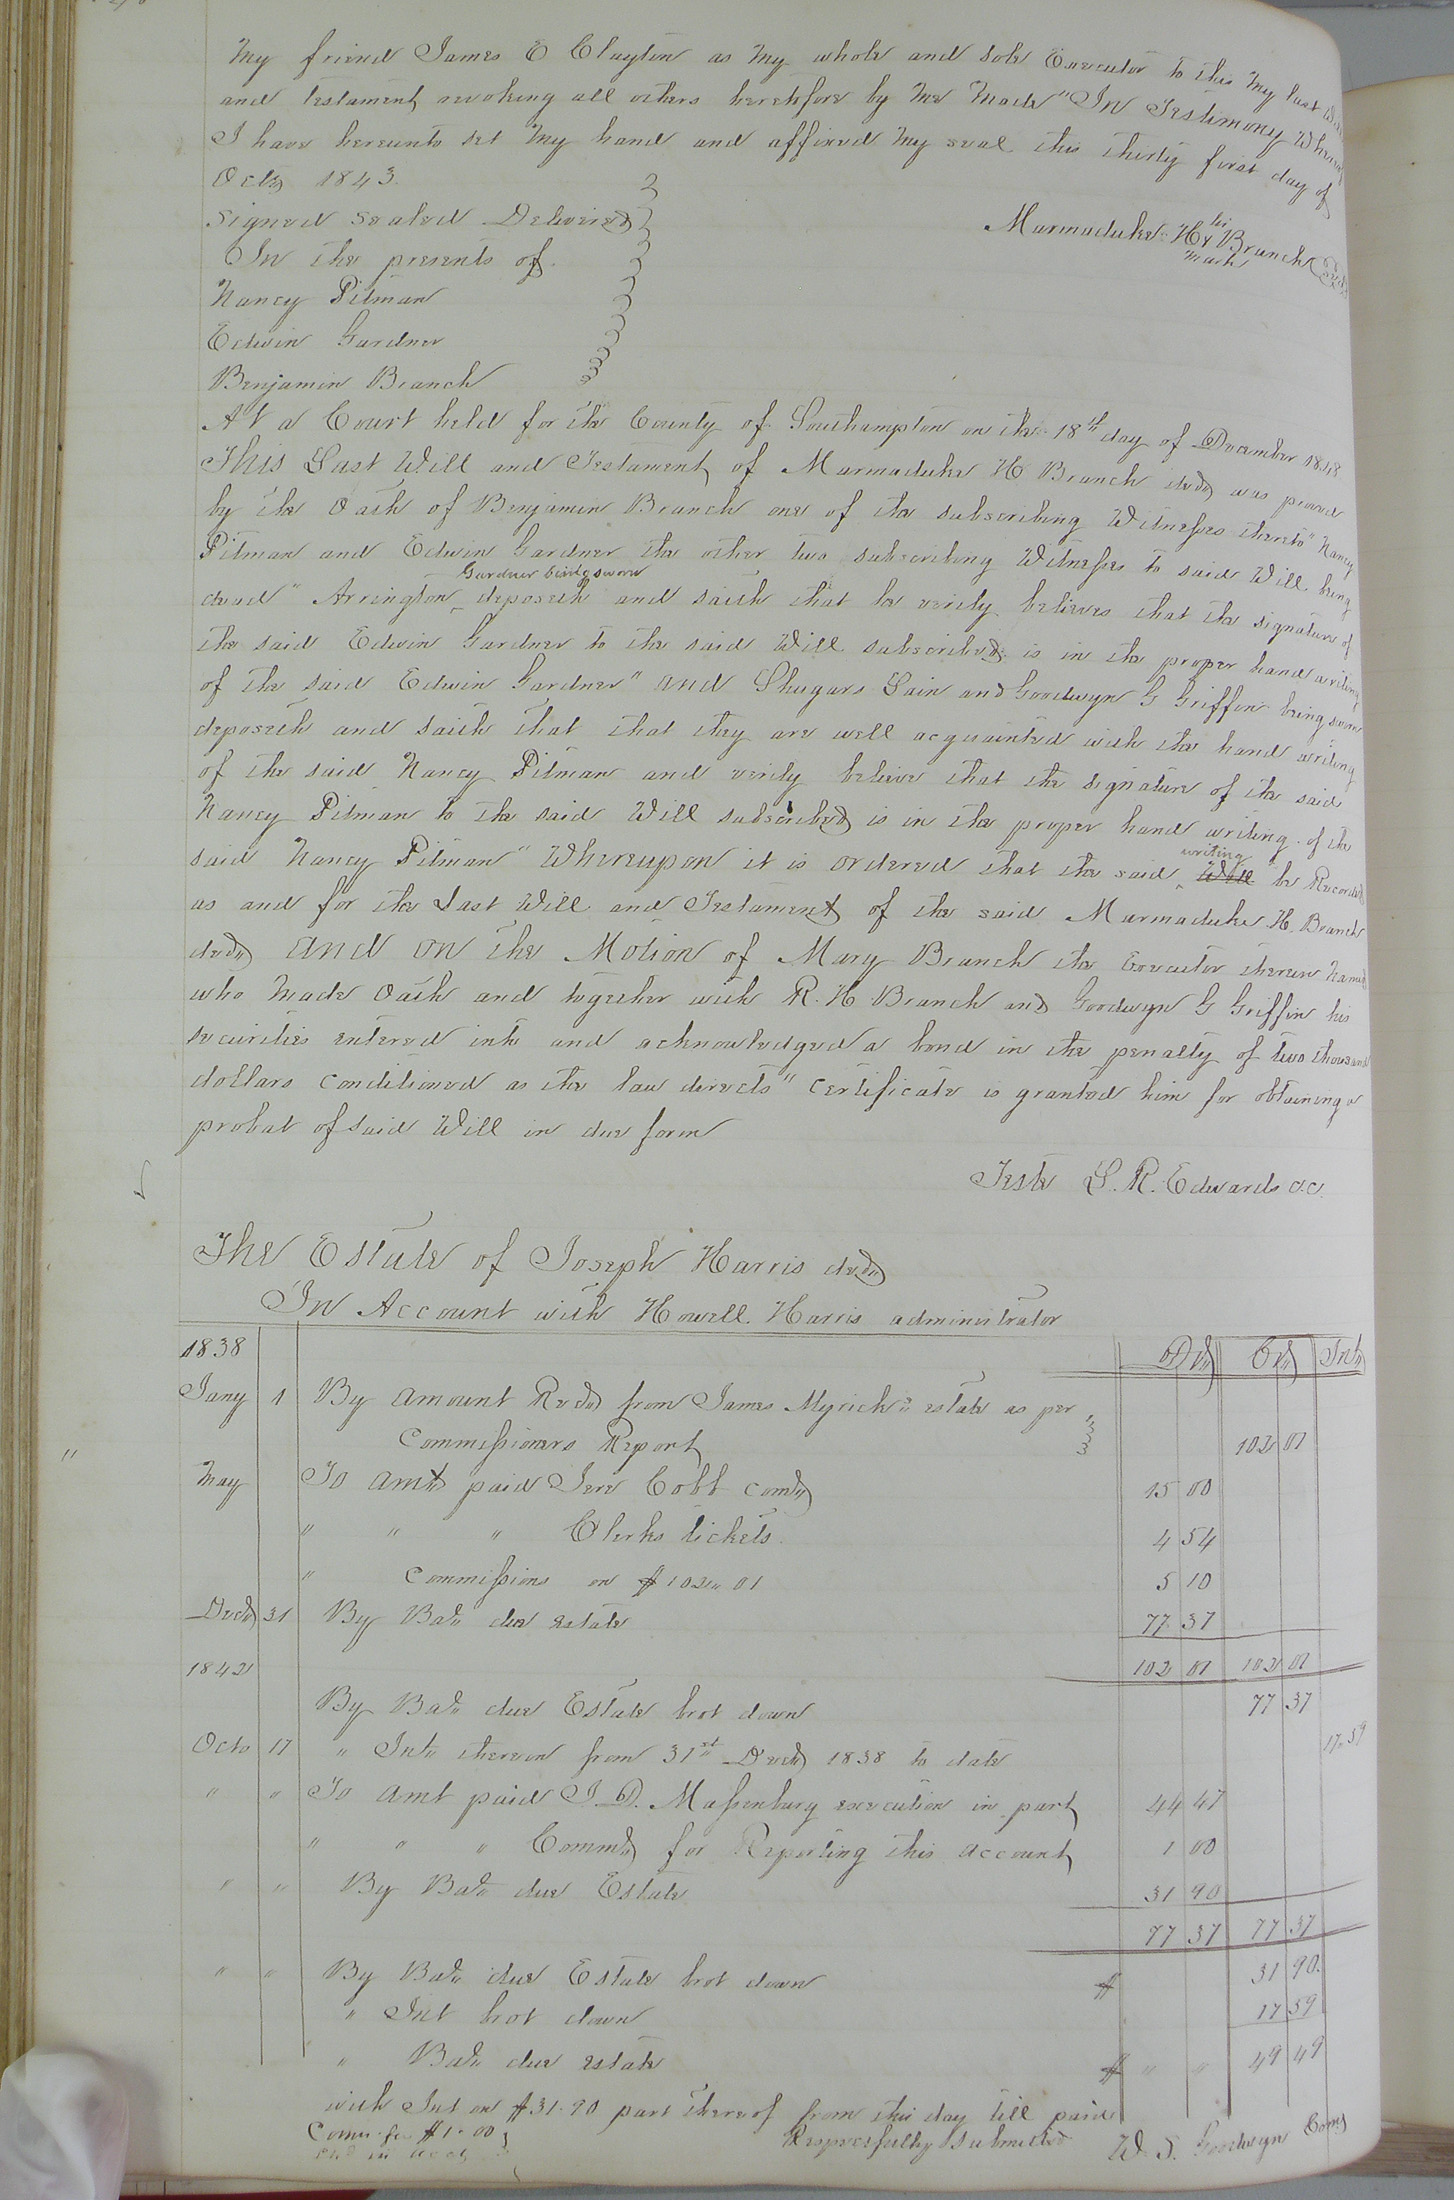 My friend James E Clayton as My whole and sole Executor to this My last Will
and testament revoking all others heretofore by Me Made" In Testimony Whereof
I have hereunto set My hand and affixed My seal this thirty first day of
Octo 1843.
Signed sealed Delivered
In the presents of
Nancy Pitman
Edwin Gardner
Benjamin Branch
his
Marmaduke H x Branch Seal
mark
At a Court held for the County of Southampton on the 18th day of December 1848
This Last Will and Testament of Marmaduke H Branch decd was proved
by the Oath of Benjamin Branch one of the subscribing Witnesses thereto" Nancy
Pitman and Edwin Gardner the other two subscribing Witnesses to said Will being
dead" Arrington Gardner being sworn deposeth and saith that he verily believes that the signature of
the said Edwin Gardner to the said Will subscribed is in the proper hand writing
of the said Edwin Gardner" and Shugars Lain and Goodwyn G Griffin being sworn
deposeth and saith that that they are well acquainted with the hand writing
of the said Nancy Pitman and verily believe that the signature of the said
Nancy Pitman to the said Will subscribed is in the proper hand writing of the
said Nancy Pitman" Whereupon it is ordered that the said Will writing be Recorded
as and for the Last Will and Testament of the said Marmaduke H. Branch
decd and on the Motion of Mary Branch the Executor therein Named
who Made Oath and together with R. H Branch and Goodwyn G Griffin his
securities entered into and acknowledged a bond in the penalty of two thousand
dollars conditioned as the law directs" certificate is granted him for obtaining a
probat of said Will in due form
Teste L. R. Edwards c.c.
The Estate of Joseph Harris decd
In Account with Howell Harris administrator
1838 Dr Cr Int
Jany 1 By amount Recd from James Myrick's estate as per
Commissioners Report 102 01
May To amt paid Jere Cobb comr 15 00
" " " Clerks tickets 4 54
" Commissions on $102" 01 5 10
Decr 31 By Bale due estate 77 37
1842 102 01 102 01
By Bale due Estate brot down 77 37
Octo 17 " Int thereon from 31st Decr 1838 to date 17.59
" " To amt paid J. D. Massenburg execution in part 44 47
" " " Commr for Reporting this account 1 00
" " By Bale due Estate 31 90
77 37 77 37
" " By Bale due Estate brot down $ 31 90
" Int brot down 17 59
" Bale due estate $ " " 49 49
with Int on $31.90 part thereof from this day till paid
Comr fee $1.00
Respectfully submitted W. S. Goodwyn Comr